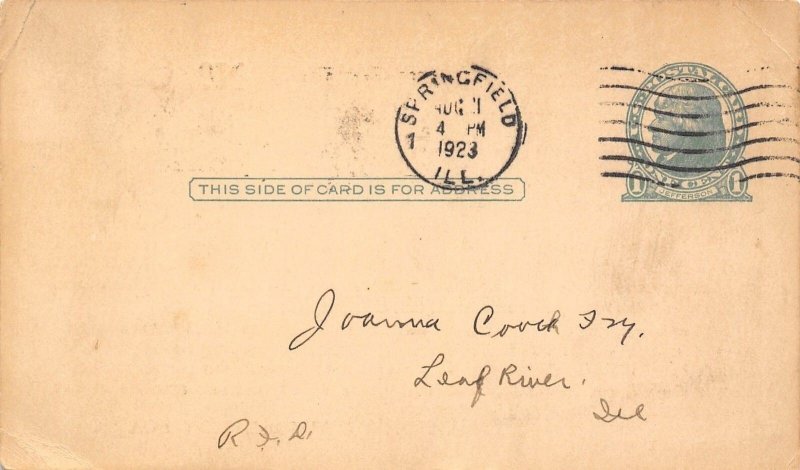 SPRINGFIELD
AUG
4 PM
1
1923
ILL.
U.S. POSTAL CARD
ONE CENT
1 JEFFERSON 1
THIS SIDE OF CARD IS FOR ADDRESS
Joanna
Leaf River.
Ill
R.F.D.